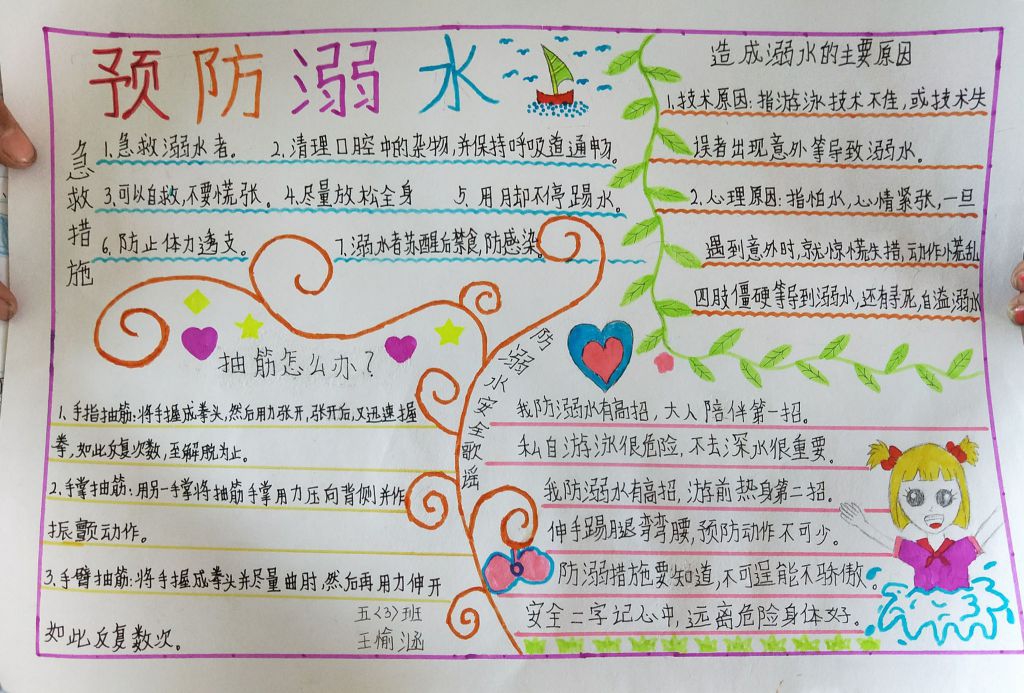 预防溺水
急救措施
1.急救溺水者。 2.清理口腔中的杂物,并保持呼吸道通畅。
3.可以自救,不要慌张。 4.尽量放松全身 5.用月却不停踢水。
6.防止体力透支。 7.溺水者苏醒后禁食,防感染。
造成溺水的主要原因
1.技术原因:指游泳技术不佳,或技术失
误者出现意外等导致溺水。
2.心理原因:指怕水,心情紧张,一旦
遇到意外时,就惊慌失措,动作慌乱
四肢僵硬等导到溺水,还有寻死,自溢溺水
抽筋怎么办?
1.手指抽筋:将手握成拳头,然后用力张开,张开后,又迅速握
拳,如此反复次数,至解脱为止。
2.手掌抽筋:用另一手掌将抽筋手掌用力压向背侧并作
振颤动作。
3.手臂抽筋:将手握成拳头并尽量曲肘,然后再用力伸开
如此反复数次。
五<3>班
王愉涵
防溺水安全歌谣
我防溺水有高招,大人陪伴第一招。
私自游泳很危险,不去深水很重要。
我防溺水有高招,游前热身第二招.
伸手踢腿弯弯腰,预防动作不可少。
防溺措施要知道,不可逞能不骄傲。
安全二字记心中,远离危险身体好.